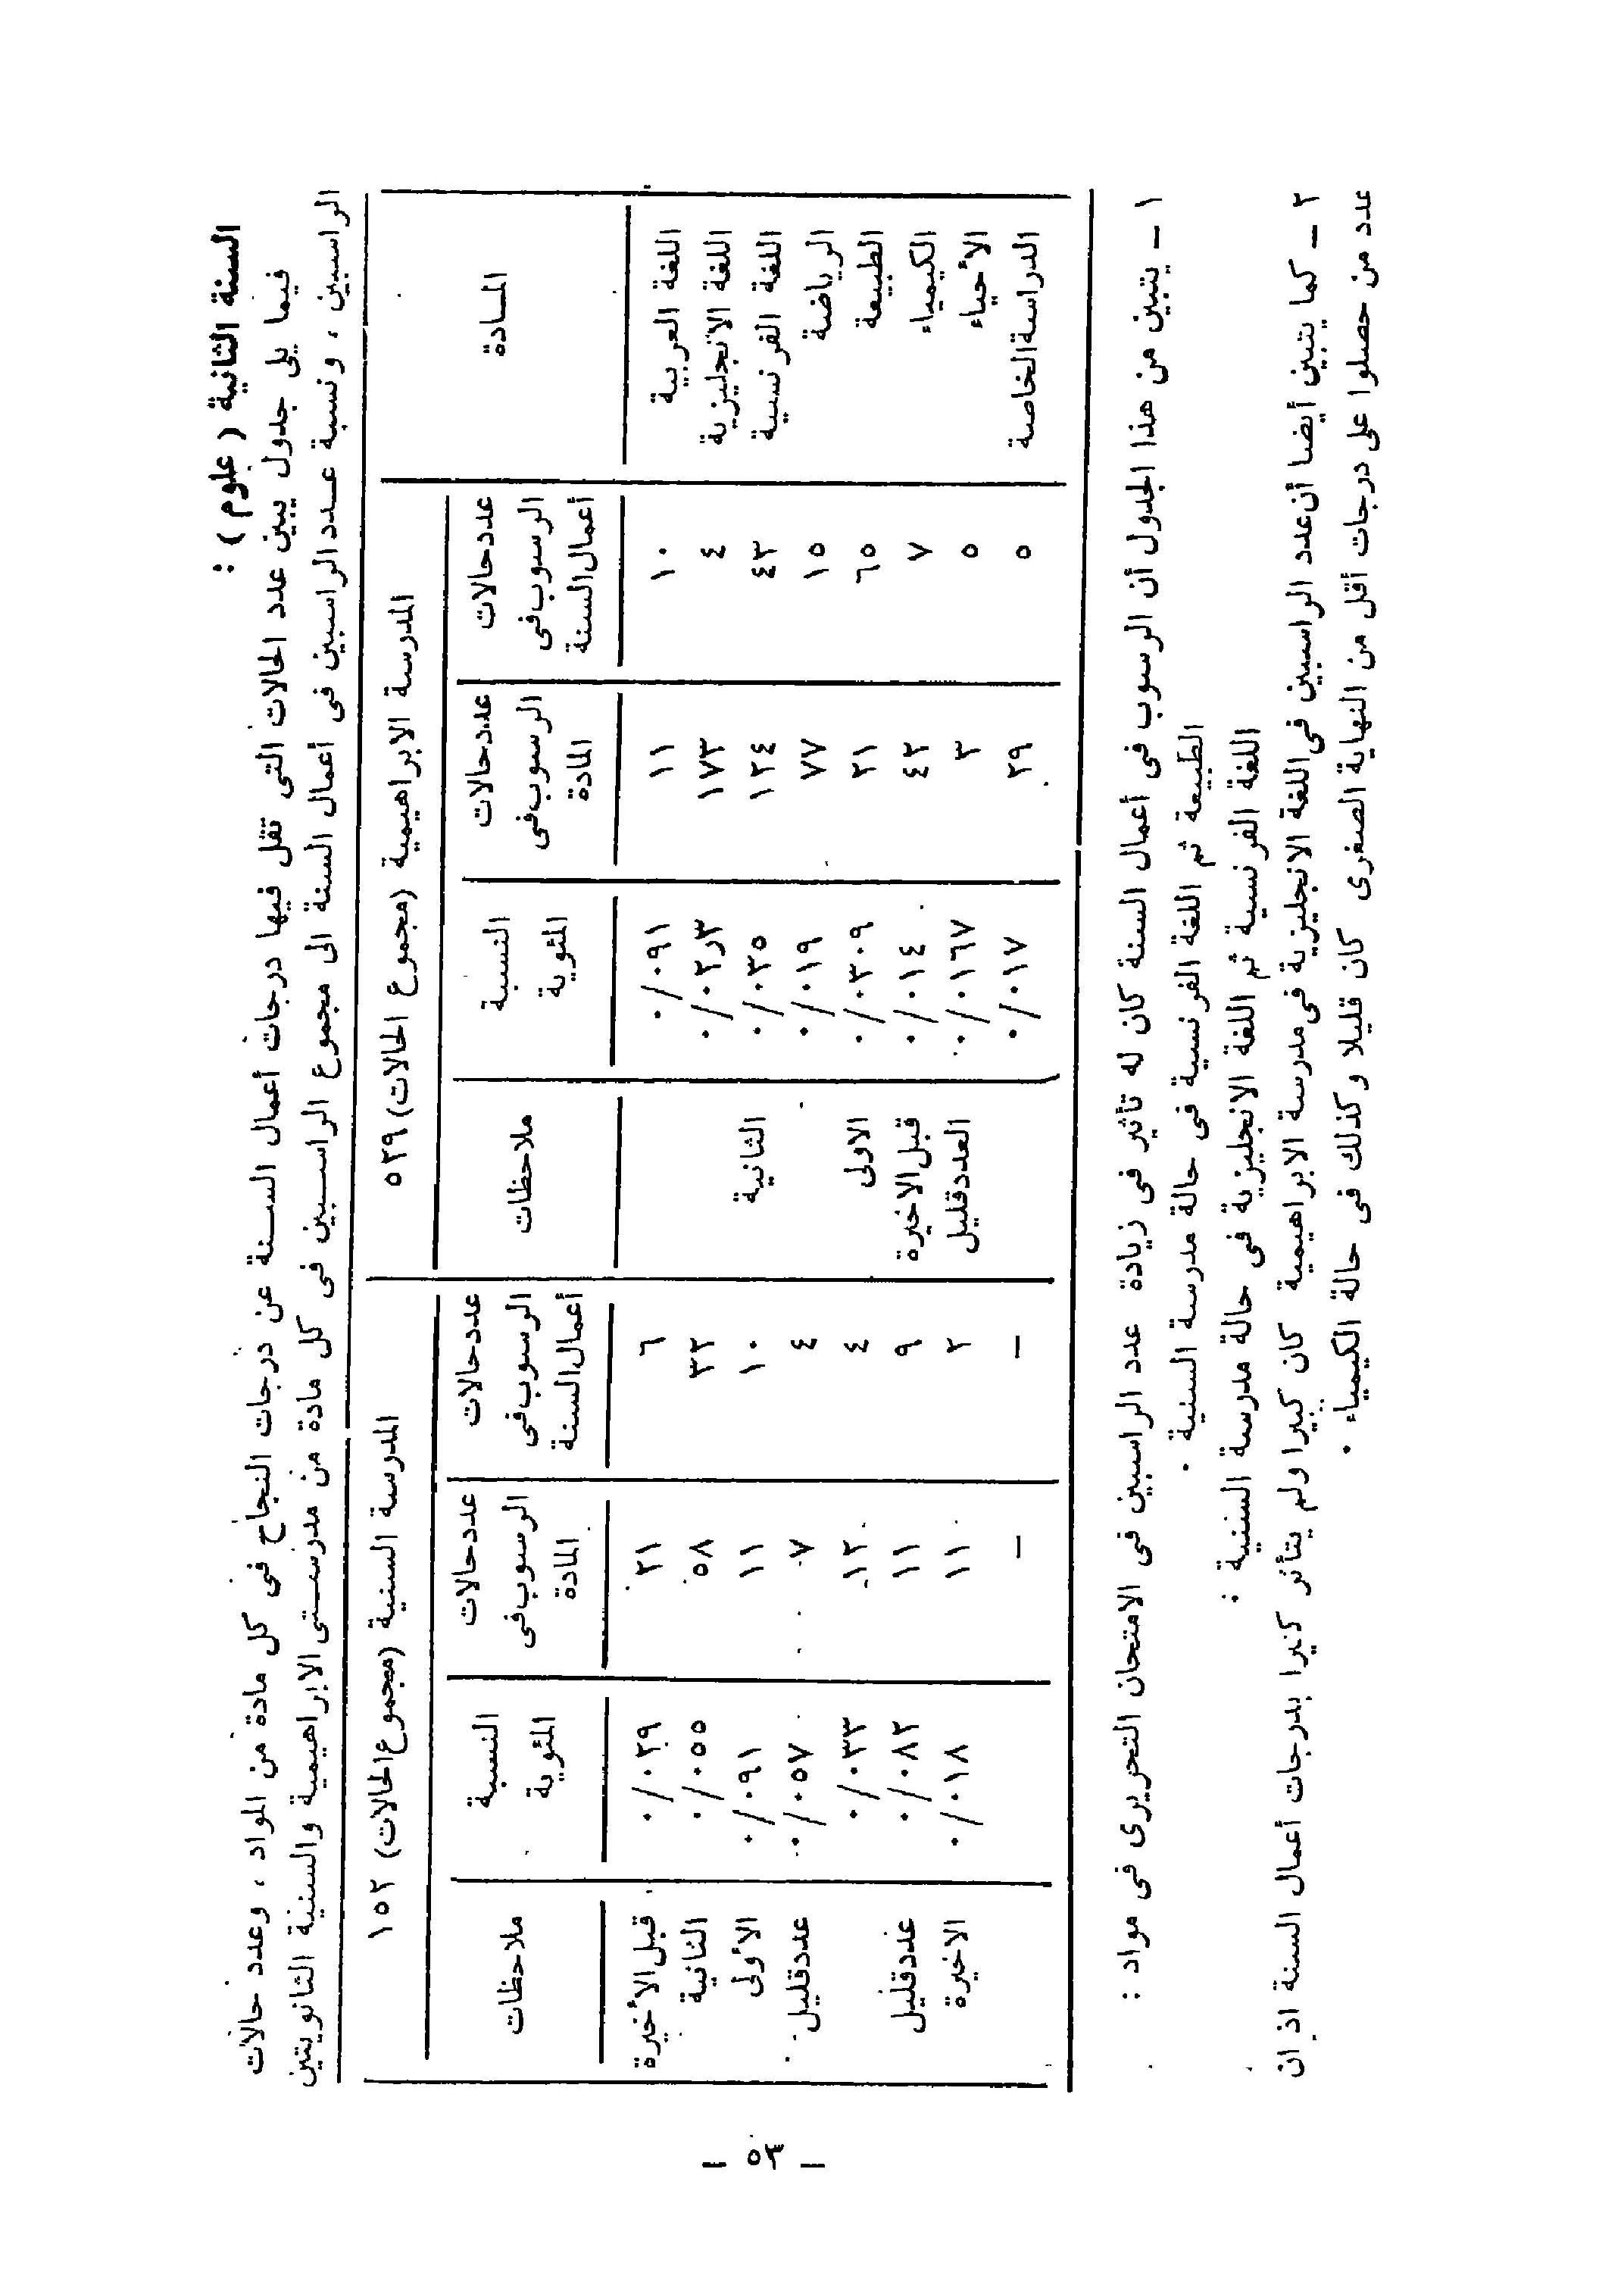 السنة الثانية (علوم) :
فيما يلى جدول يبين عدد الحالات التى تقل فيها درجات أعمال السنة عن درجات النجاح فى كل مادة من المواد ، وعدد حالات
الراسبين ، ونسبة عدد الراسبين فى أعمال السنة الى مجموع الراسبين فى كل مادة من مدرستى الابراهيمية والسنية الثانويتين
المدرسة الابراهيمية (مجموع الحالات) ٥٣٩ المدرسة السنية (مجموع الحالات) ١٥٢
المادة عدد حالات الرسوب فى أعمال السنة عدد حالات الرسوب فى المادة النسبة المئوية ملاحظات عدد حالات الرسوب فى أعمال السنة عدد حالات الرسوب فى المادة النسبة المئوية ملاحظات
اللغة العربية ١٠ ١١ ٠/٠٩١ ٦ ٢١ ٠/٠٢٩ قبل الأخيرة
اللغة الانجليزية ٤ ١٧٣ ٠/٠٢٫٣ ٣٢ ٥٨ ٠/٠٥٥ الثانية
اللغة الفرنسية ٤٣ ١٢٤ ٠/٠٣٥ الثانية ١٠ ١١ ٠/٠٩١ الأولى
الرياضة ١٥ ٧٧ ٠/٠١٩ ٤ ٧ ٠/٠٥٧ عدد قليل
الطبيعة ٦٥ ٢١ ٠/٠٣٠٩ الاولى ٤ ١٢ ٠/٠٣٣
الكيمياء ٧ ٤٢ ٠/٠١٤ قبل الاخيرة ٩ ١١ ٠/٠٨٢ عدد قليل
الأحياء ٥ ٣ ٠/٠١٦٧ العدد قليل ٢ ١١ ٠/٠١٨ الاخيرة
الدراسة الخاصة ٥ ٢٩ ٠/٠١٧ — —
١ – يتبين من هذا الجدول أن الرسوب فى أعمال السنة كان له تأثير فى زيادة عدد الراسبين فى الامتحان التحريرى فى مواد :
الطبيعة ثم اللغة الفرنسية فى حالة مدرسة السنية .
اللغة الفرنسية ثم اللغة الانجليزية فى حالة مدرسة السنية :
٢ – كما يتبين أيضا أن عدد الراسبين فى اللغة الانجليزية فى مدرسة الابراهيمية كان كبيرا ولم يتأثر كثيرا بدرجات أعمال السنة اذ ان
عدد من حصلوا على درجات أقل من النهاية الصغرى كان قليلا وكذلك فى حالة الكيمياء .